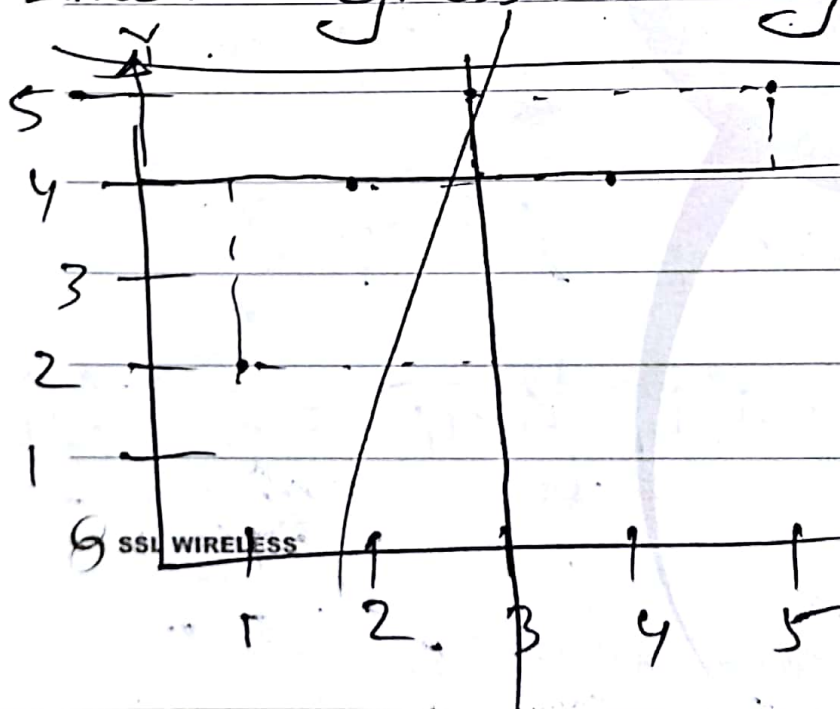 Y
5
4
3
2
1
SSL WIRELESS
1 2 3 4 5